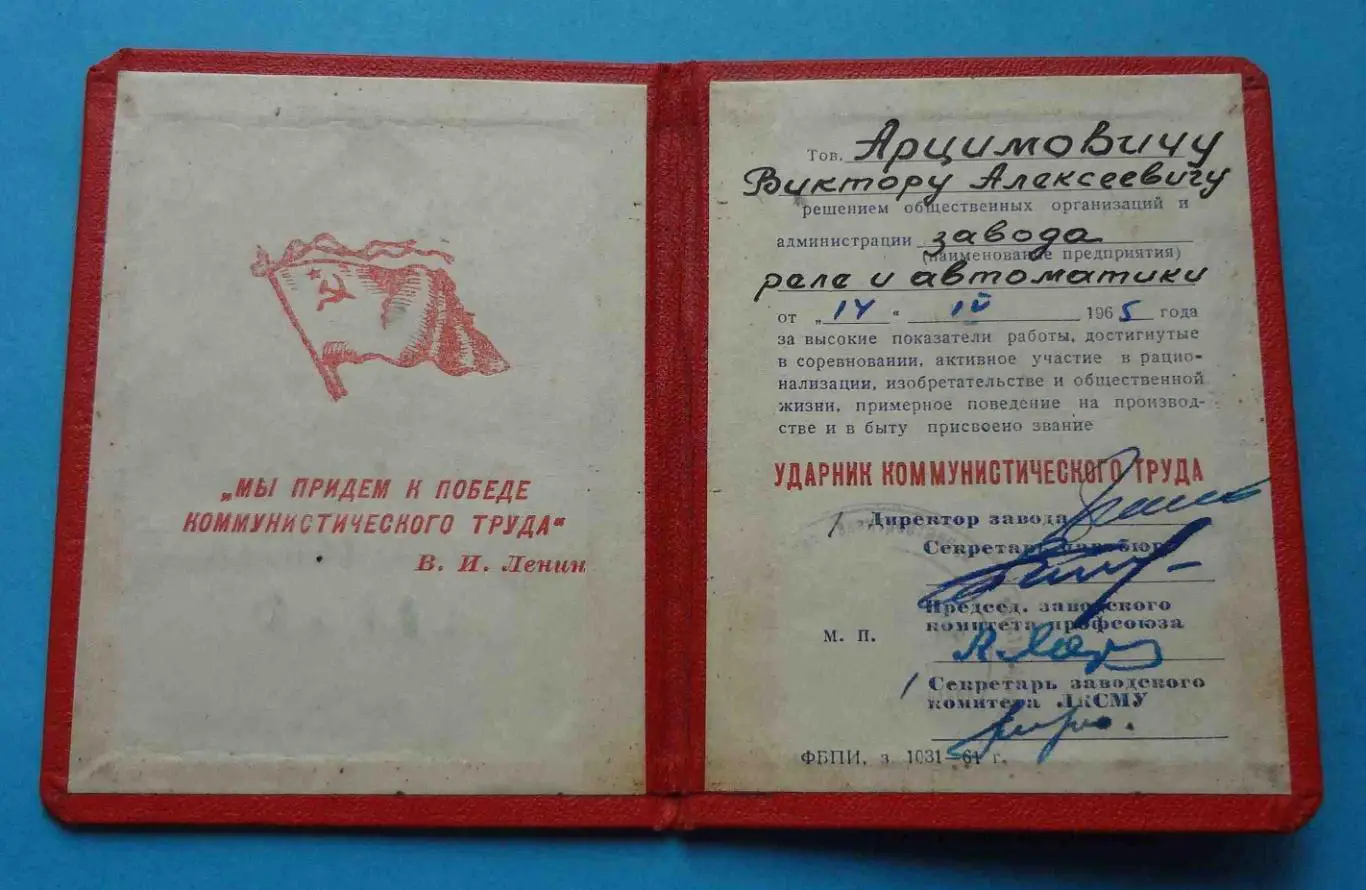 „МЫ ПРИДЕМ К ПОБЕДЕ
КОММУНИСТИЧЕСКОГО ТРУДА“
В. И. Ленин
Тов. Арцимовичу
Виктору Алексеевичу
решением общественных организаций и
администрации завода
(наименование предприятия)
реле и автоматики
от „14“ IV 1965 года
за высокие показатели работы, достигнутые
в соревновании, активное участие в рацио-
нализации, изобретательстве и общественной
жизни, примерное поведение на производ-
стве и в быту присвоено звание
УДАРНИК КОММУНИСТИЧЕСКОГО ТРУДА
Директор завода
Секретарь партбюро
Председ. заводского
комитета профсоюза
М. П.
Секретарь заводского
комитета ЛКСМУ
ФБПИ, з. 1031—61 г.